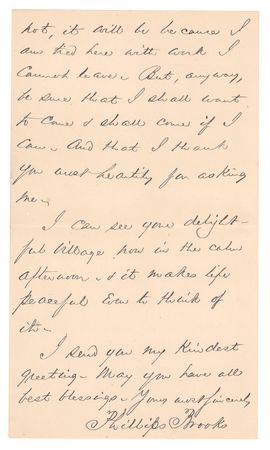 not, it will be because I
am tied here with work I
cannot leave. But, anyway,
be sure that I shall want
to come & shall come if I
can. And that I thank
you most heartily for asking
me.
I can see your delight-
ful village now in the calm
afternoon & it makes life
peaceful even to think of
it.
I send you my kindest
greeting. May you have all
best blessings. Yours most sincerely
Phillips Brooks